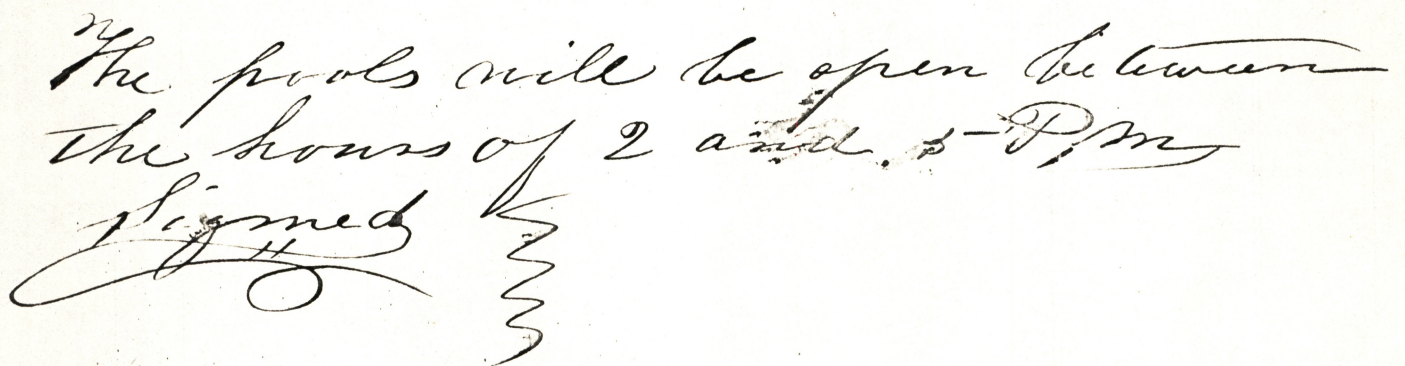 The pools will be open between
the hours of 2 and 5 P,m,
Signed